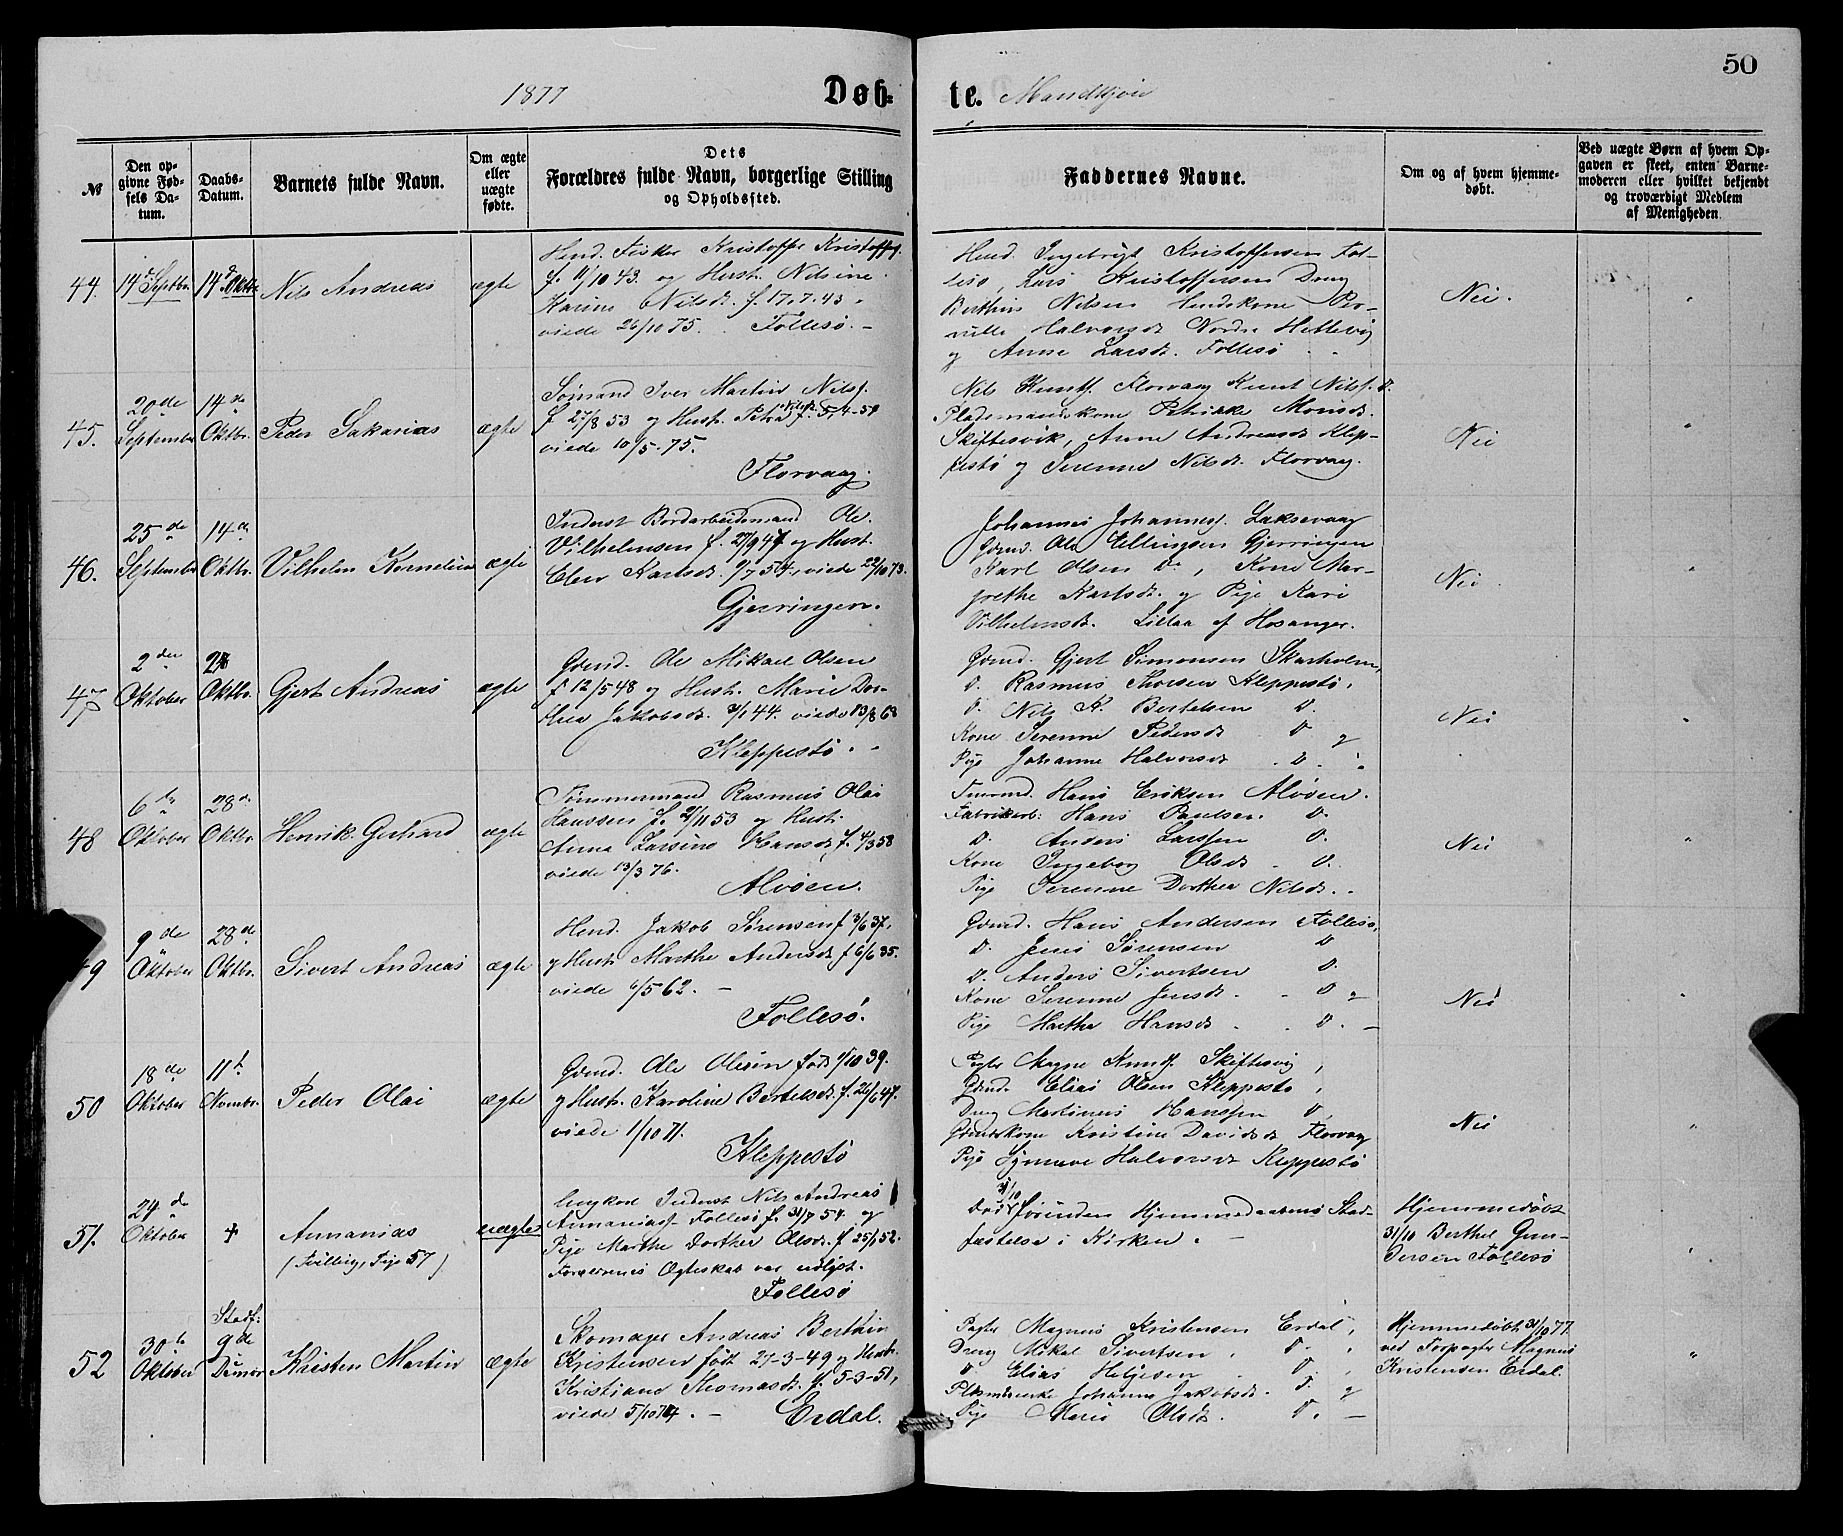 50
1877 Døb- te. Mandkjøn
№
Den op-
givne Fød-
sels Da-
tum.
Daabs-
Datum.
Barnets fulde Navn.
Om ægte
eller
uægte
fødte.
Dets
Forældres fulde Navn, borgerlige Stilling
og Opholdssted.
Faddernes Navne.
Om og af hvem hjemme-
døbt.
Ved uægte Børn af hvem Op-
gaven er skeet, enten Barne-
moderen eller hvilket bekjendt
og troværdigt Medlem
af Menigheden.
44.
14de Septbr.
14de Oktbr.
Nils Andreas
ægte
Hmd. Fisker Kristoffer Kristoffs.
f. 11/10 43. og Hust. Nilsine
Karine Nilsd. f. 17.7.43.
viede 26/10 75. Follesø. –
Hmd. Ingebrigt Kristoffersen Fol-
lesø, Lars Kristoffersen Dreng
Berthin Nilsen Hmdskone Per-
nille Halvorsd. Nordre Hettevig
og Anne Larsd. Follesø
Nei.
45.
20de
September
14de
Oktbr.
Peder Sakarias
ægte
Sømand Iver Martin Nils.
f. 27/8 53 og Hust. Petra Nilsd. f. 5-4-54
viede 10/5-75.
Florvaag.
Nils Knuts. Florvaag Knut Nils. D.
Pladsmandskone Petrikke Monsd.
Skiftesvik, Anne Andreasd. Klep-
pestø og Serenne Nilsd. Florvaag.
Nei
46.
25de
September
14de
Oktbr.
Vilhelm Kornelius
ægte
Inderst Bordarbeidsmand Ole
Vilhelmsen f. 27/9 47 og Hust.
Elen Karlsd. 9/7 54, viede 22/10 73.
Gjerringen.
Johannes Johannes. Laksevaag
Grmd. Ole Ellingsen Gjerringen
Karl Olsen Do, Kone Mar-
grethe Karlsd. og Pige Kari
Vilhelmsd. Lillaa af Hosanger.
Nei
47
2den
Oktober
28
Oktbr.
Gjert Andreas
ægte
Grmd. Ole Mikael Olsen
f 12/5 48 og Hust. Marie Dor-
thea Jakobsd. 3/1 44. viede 13/8 63
Kleppestø.
Grmd. Gjert Simonsen Skarholm,
D. Rasmus Thorsen Kleppestø,
D. Nils K. Bertelsen D.
Kone Serenne Pedersd. D og
Pige Johanne Halvorsd. D.
Nei
48
6te
Oktober
28de
Oktbr.
Henrik Gerhard
ægte
Tømmermand Rasmus Olai
Hanssen f. 2/11 53 og Hust.
Anna Larsine Hansd. f. 4/3 58
viede 13/3 76.
Alvøen.
Hans Eriksen Alvøen.
Fabrikarb. Hans Paulsen D.
D. Anders Larssen D.
Kone Ingeborg Olsd. D.
Pige Serenne Dorthea Nilsd.
Nei
49
9de
Oktober
28de
Oktbr.
Sivert Andreas
ægte
Hmd. Jakob Sørensen f 3/6 37,
og Hust. Marthe Andersd. f 6/6 35.
viede 6/5 62. –
Follesø.
Grmd. Hans Andersen Follesø,
D. Jens Sørensen D
D. Anders Sivertsen D.
Kone Serenne Jensd. D og
Pige Marthe Hansd. D. –
Nei
50
18de
Oktober
11te
Novmbr.
Peder Olai
ægte
Grmd. Ole Olesen født 1/10 39.
og Hust. Karoline Bertelsd. f. 26/6 47.
viede 1/10 71.
Kleppestø
Pagter Magne Knuts. Skiftesvig,
Grmd. Elias Olsen Kleppestø,
Dreng Martinus Hanssen D,
Grmdskone Kristine Davidsd. Florvaag
Pige Synneve Halvorsd. Kleppestø
Nei
51.
29de
Oktober
+
Annanias
(Tvilling, Pige 57)
uægte
Ungkarl Inderst Nils Andreas
Annanias. Follesø f. 31/7 54. og
Pige Marthe Dorthea Olsd. f 25/1 52.
Forældrenes Ægteskab var udlyst.
Follesø
Død 31/10 førinden Hjemmedaabens Stad-
fæstelse i Kirken. –
Hjemmedøbt
31/10 Berthel Gun-
dersen Follesø
52
30te
Oktober
Stadf.
9de
Dcmbr
Kristen Martin
ægte
Skomager Andreas Berthin
Kristensen født 27-3-49 og Hust.
Kristiane Thomasd. f. 5-3-51,
viede 5/10 74. – Erdal.
Pagter Magnus Kristensen Erdal,
Dreng Mikal Sivertsen, D.
D Elias Helgesen D.
Johanna Jakobsd. D. og
Pige Maria Olsd. D. –
Hjemmedøbt 31/10 77
ved Forpagter Magnus
Kristensen Erdal.